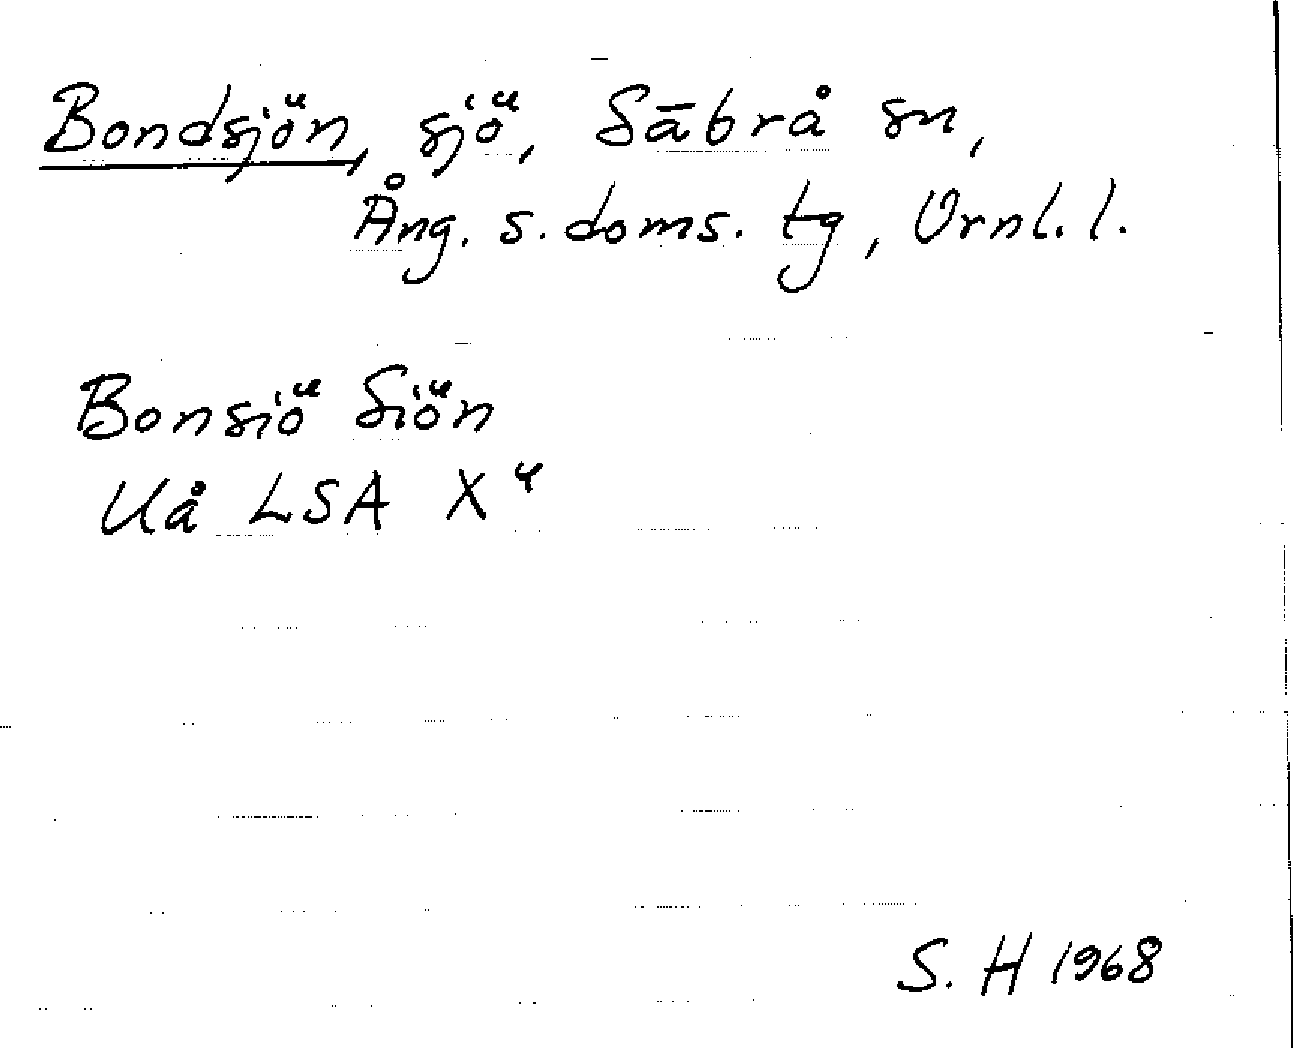 Bondsjön, sjö, Säbrå sn,
Ång. s. doms. tg, Vrnl. l.
Bonsiö Siön
Uå LSA X 4
S. H 1968